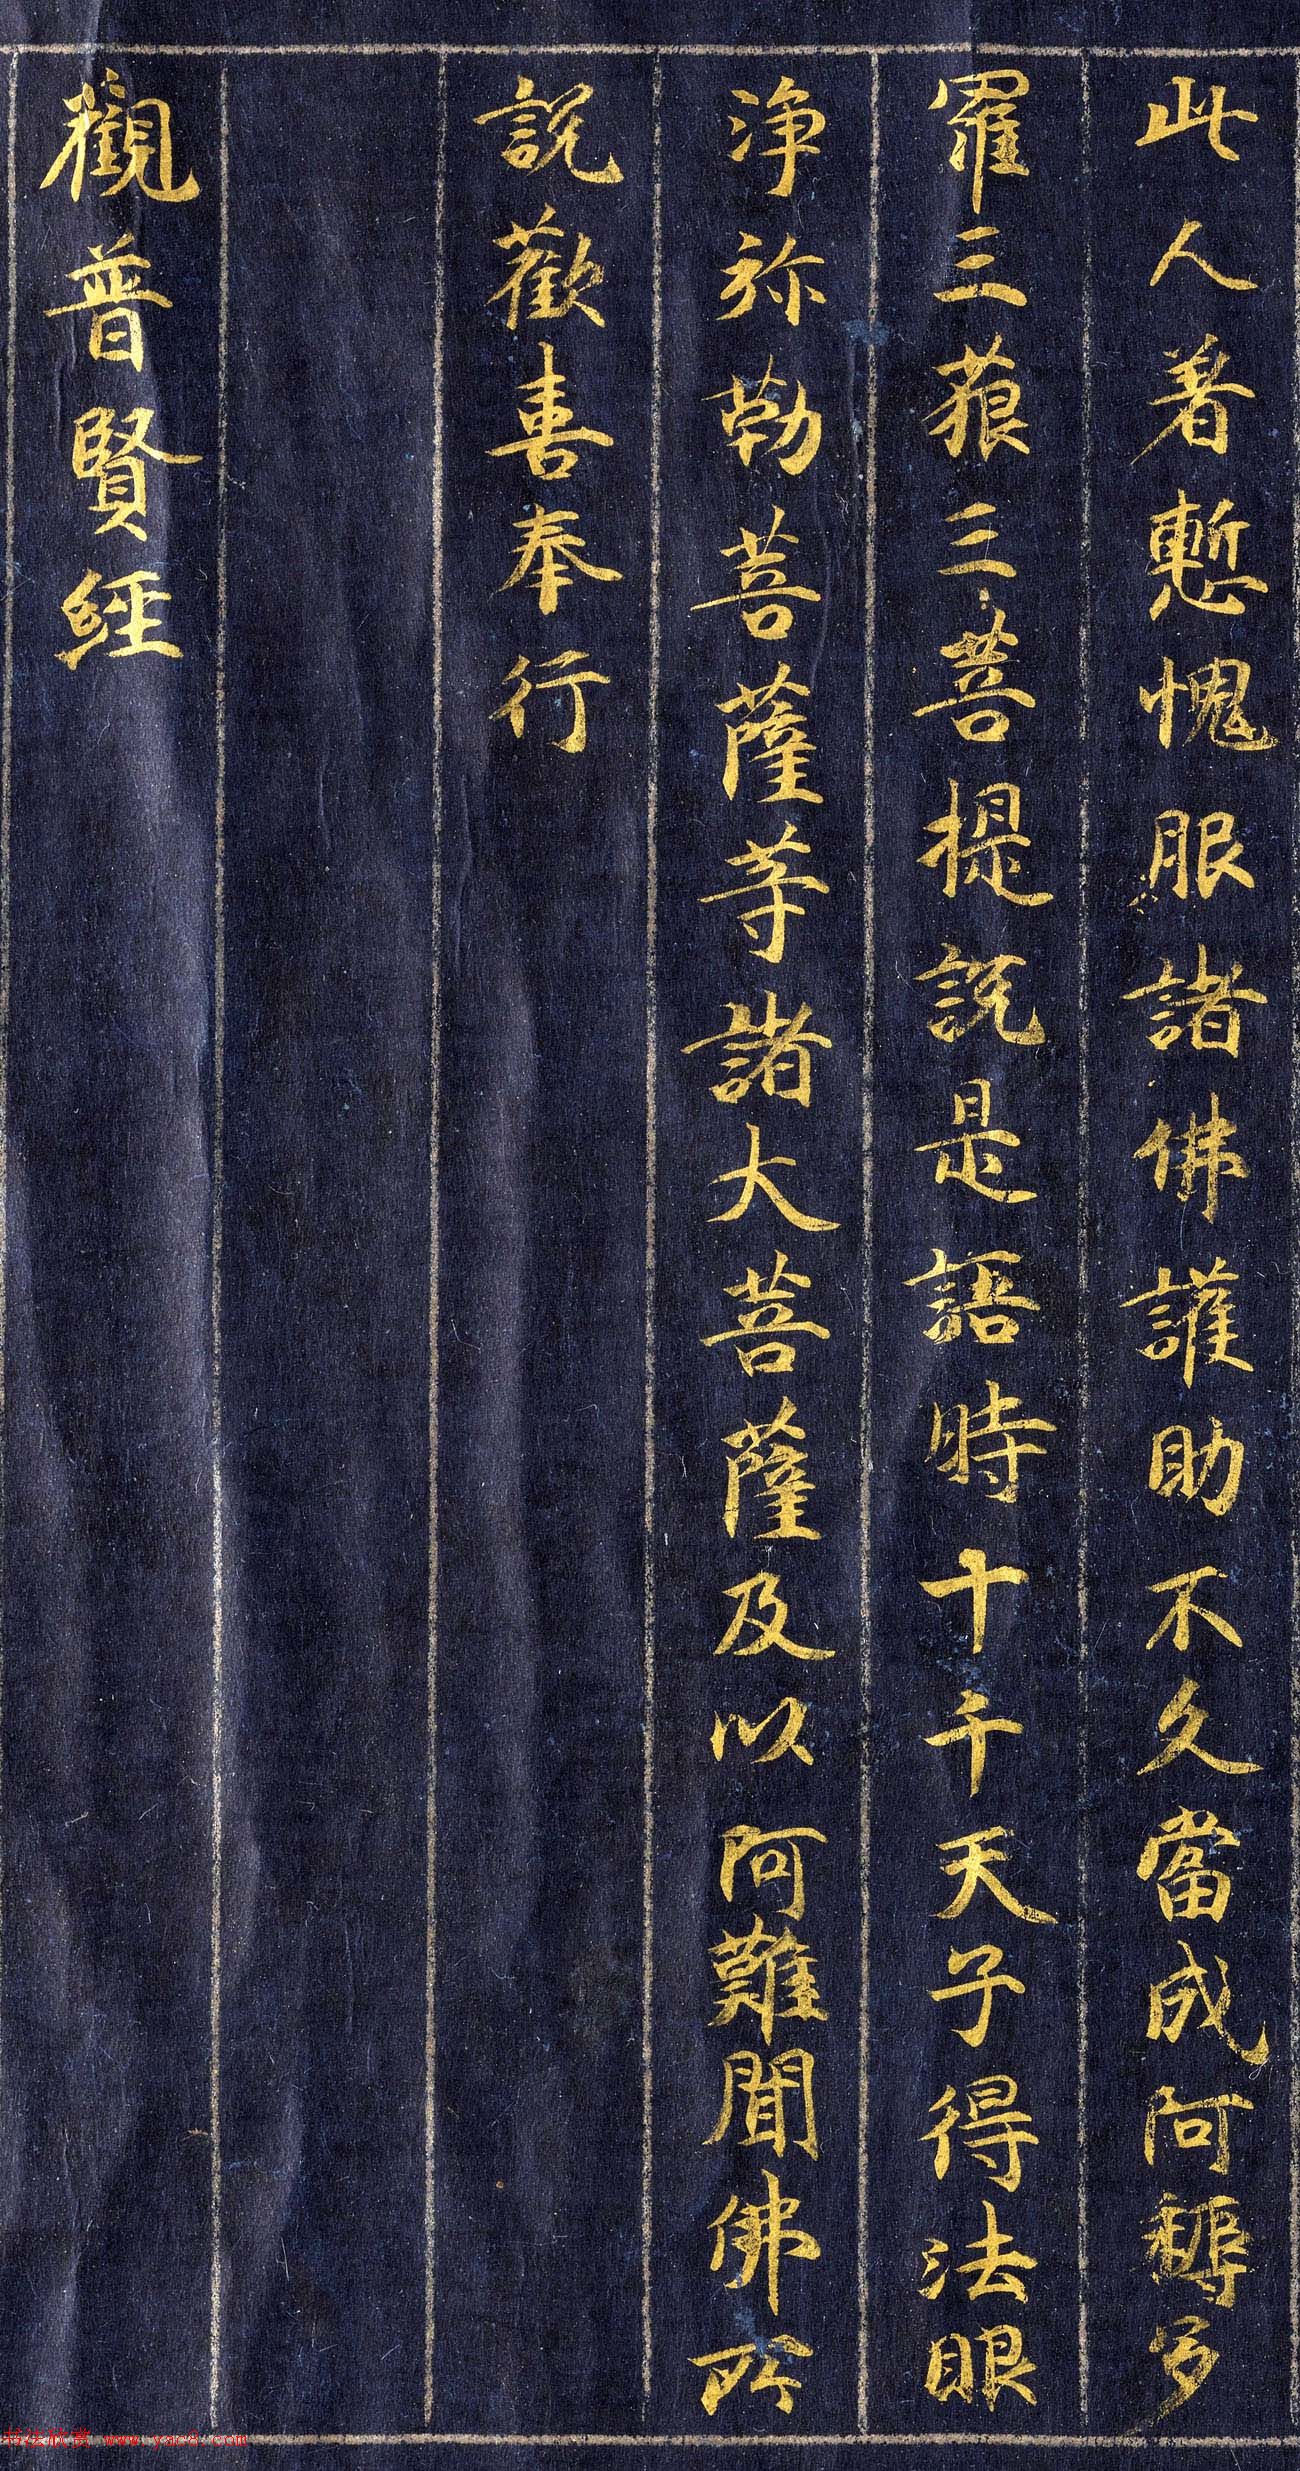 此人著慙愧服諸佛護助不久當成阿耨多
羅三藐三菩提說是語時十千天子得法眼
淨弥勒菩薩等諸大菩薩及以阿難聞佛所
說歡喜奉行
觀普賢經
书法欣赏 www.yac8.com